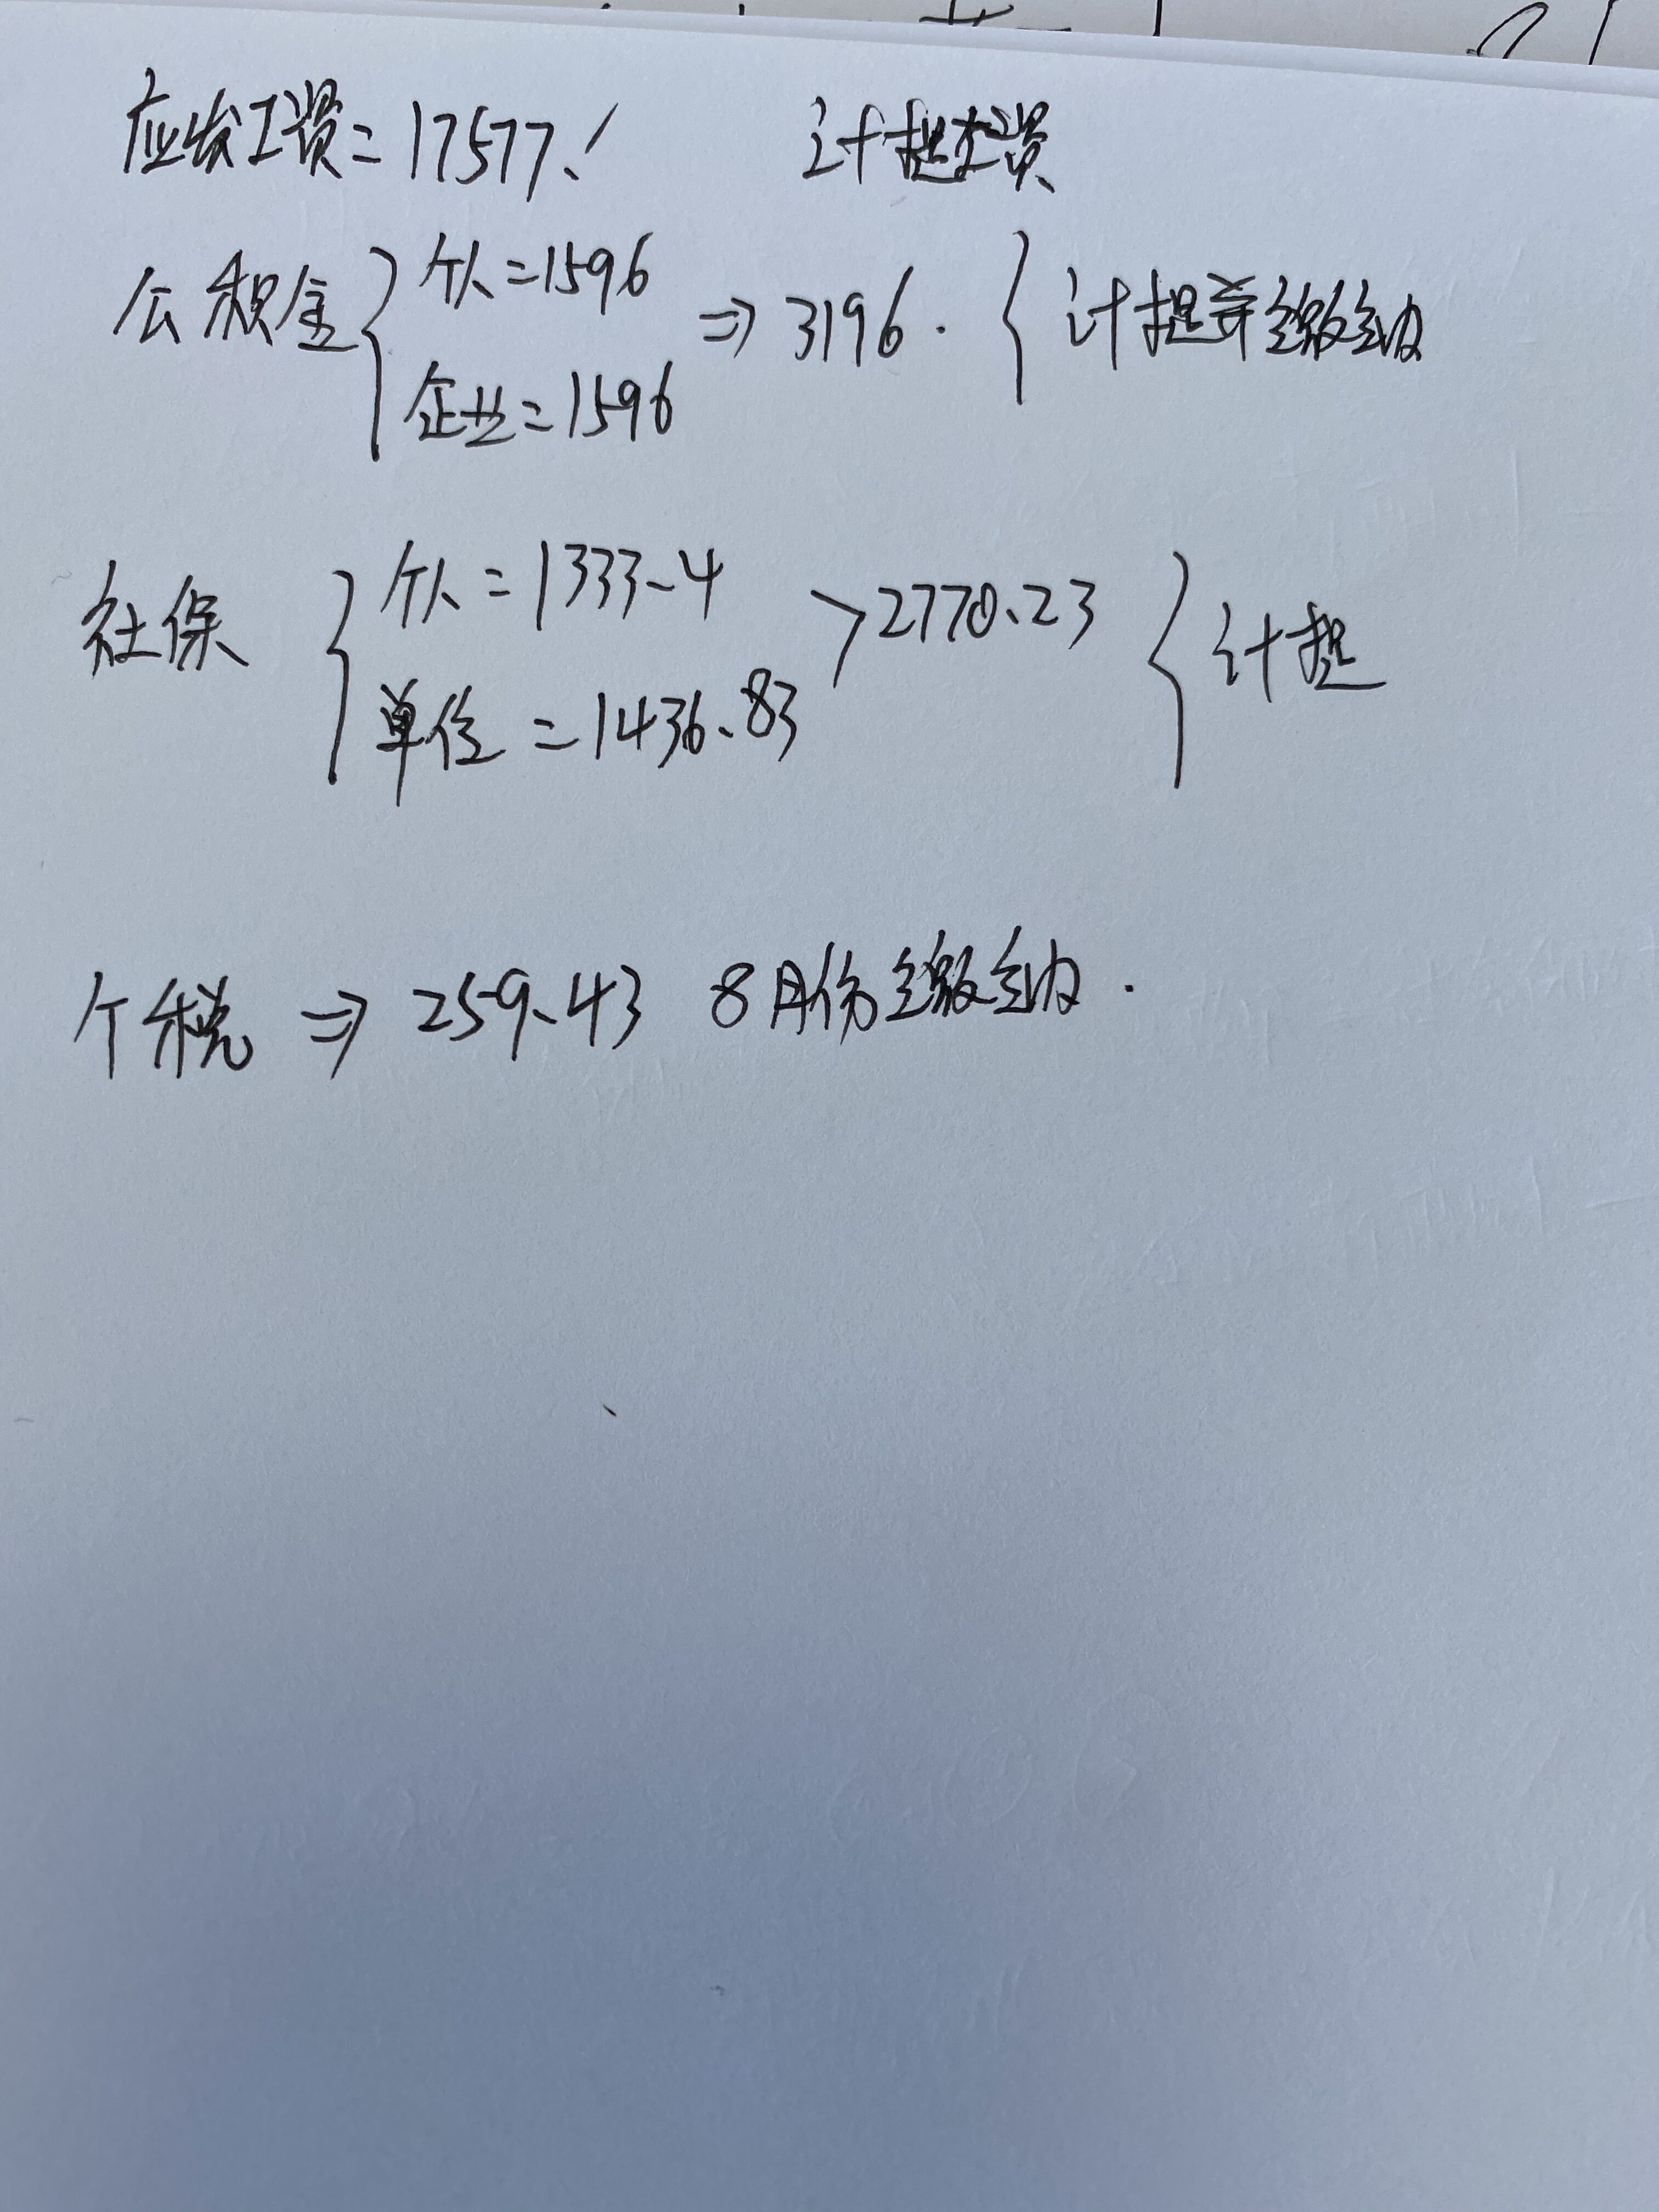 应发工资=17577.1 计提工资
公积金 个人=1596 ⇒3196. 计提并缴纳
企业=1596
社保 个人=1333.4 >2770.23 计提
单位=1436.83
个税⇒259.43 8月份缴纳.